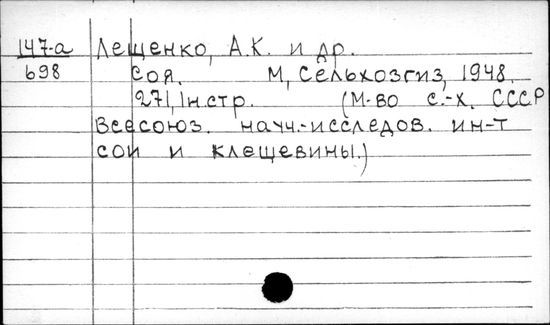 147-а Лещенко, А.К. и др.
698 Соя. М, Сельхозгиз, 1948.
271, 1н.стр. (М-во с.-х. СССР
Всесоюз. научн.-исследов. ин-т
сои и клещевины.)